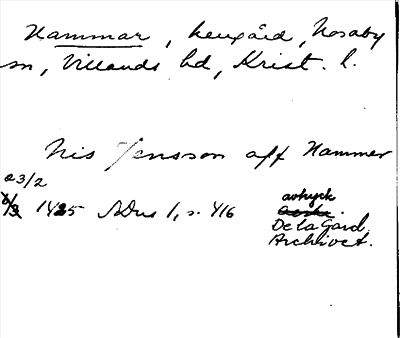 Hammar, herrgård, Nosaby
sn, Villands hd, Krist. l.
Nis Jensson aff Hammer
23/2
1425 SDns 1, s. 416
avtryck
De la Gard.
Archivet.